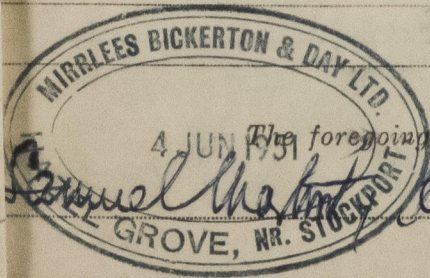 MIRRLEES BICKERTON & DAY LTD.
4 JUN 1951
The foregoing
Samuel
GROVE, NR. STOCKPORT